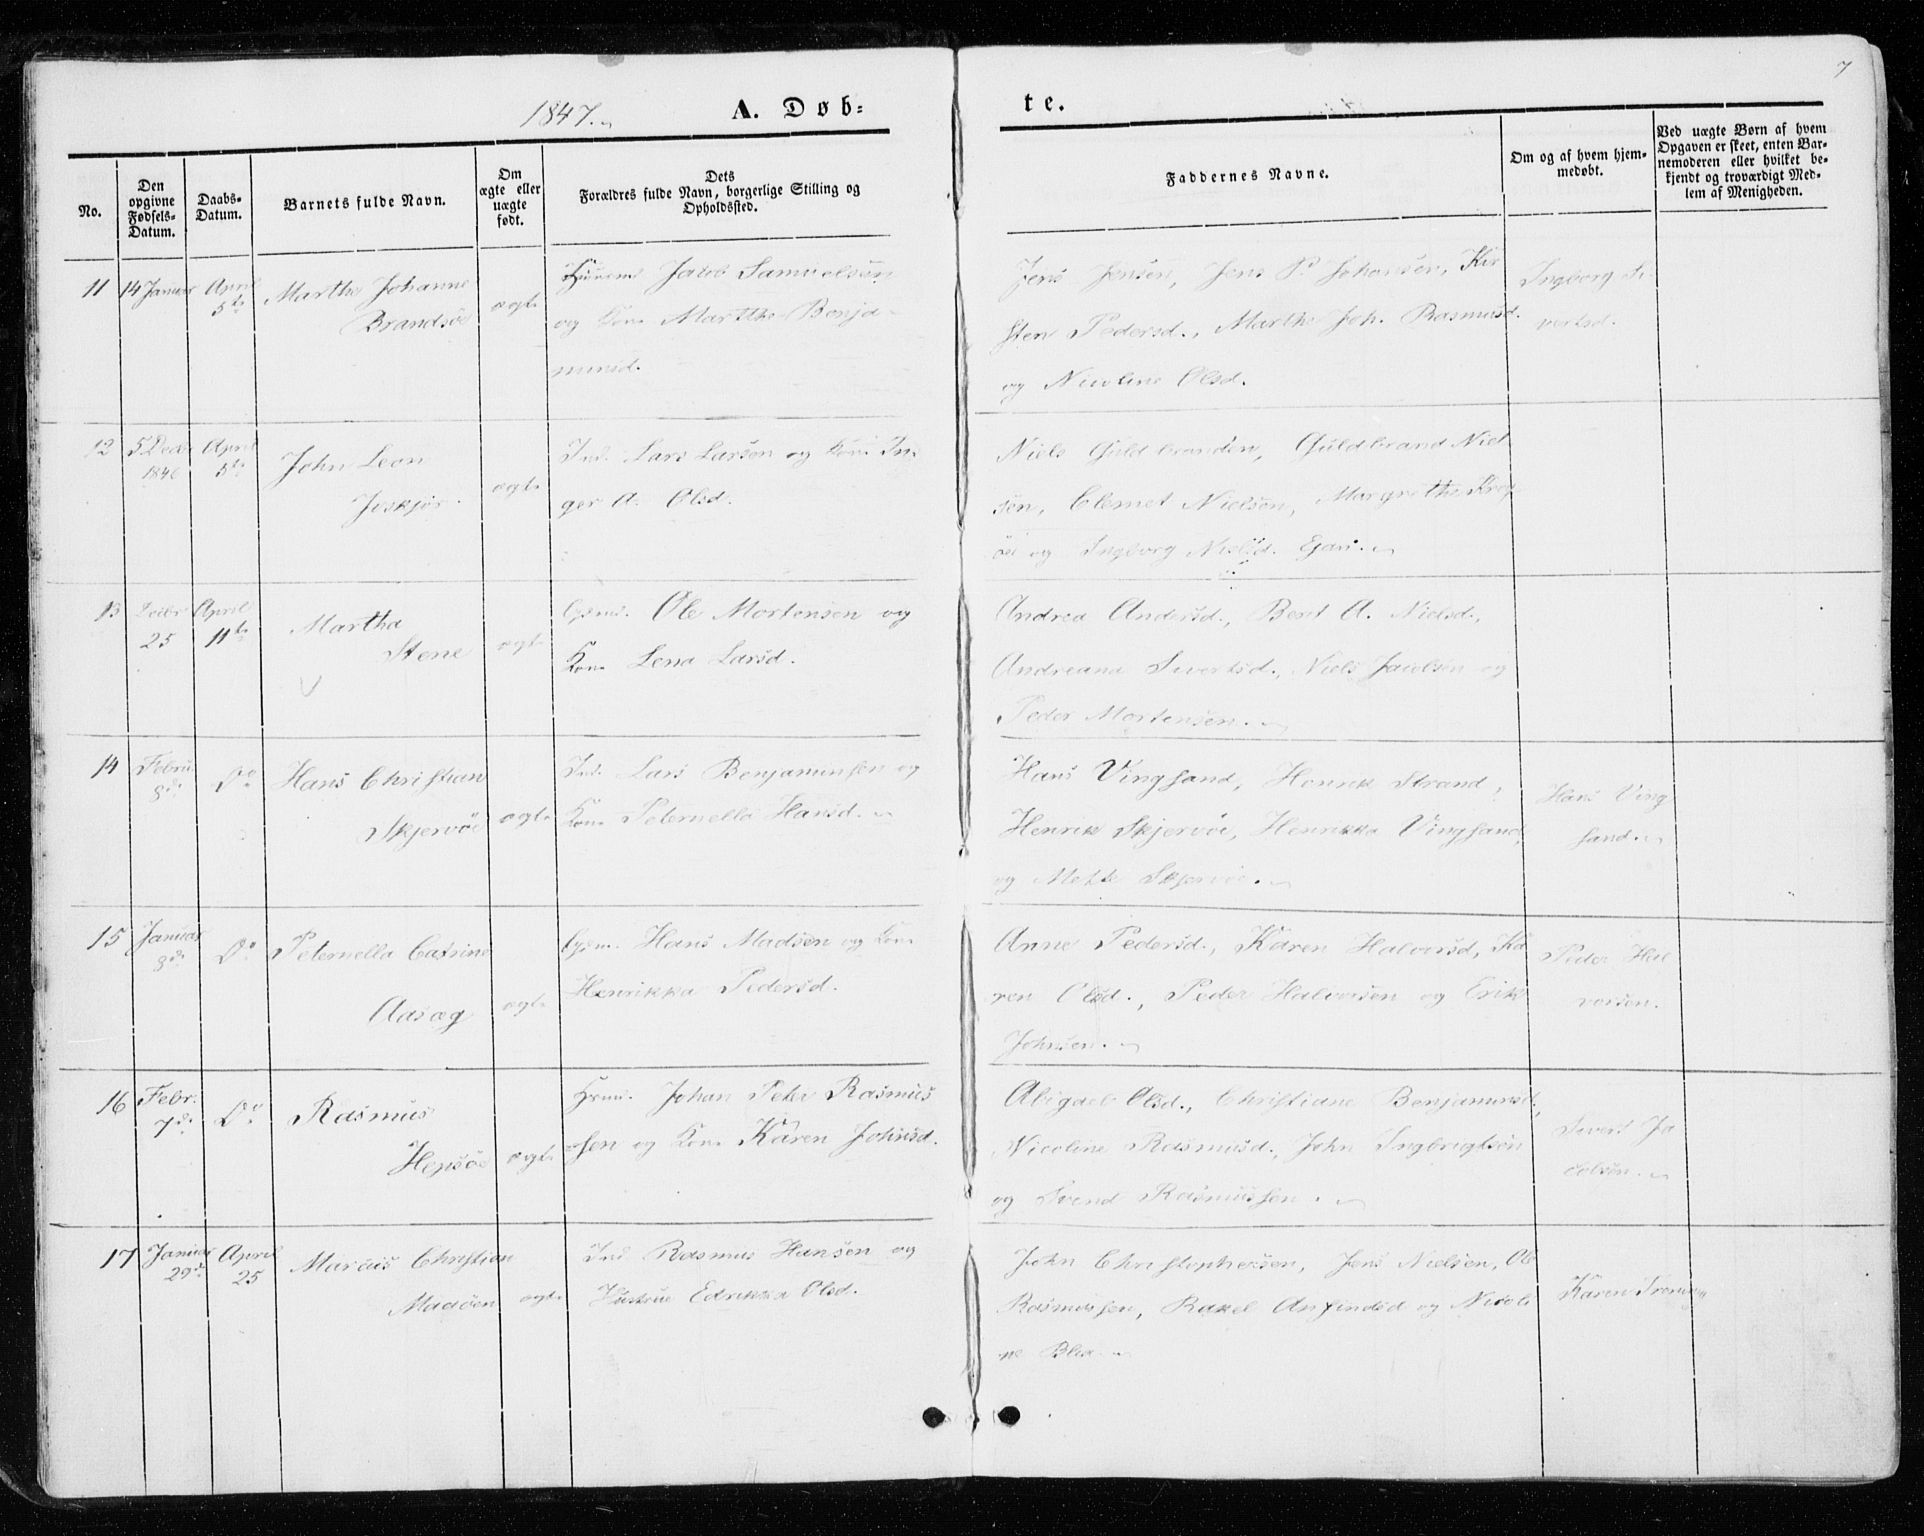 7
1847.
A. Døb-
te.
No.
Den opgivne Fødsels-Datum.
Daabs-Datum.
Barnets fulde Navn.
Om ægte eller uægte født.
Dets
Forældres fulde Navn, borgerlige Stilling og
Opholdssted.
Faddernes Navne.
Om og af hvem hjem-
medøbt.
Ved uægte Børn af hvem
Opgaven er skeet, enten Bar-
nemoderen eller hvilket be-
kjendt og troværdigt Med-
lem af Menigheden.
11 14 Januar April 5te Marthe Johanne
Brandsöe
ægte
Huusmd. Jacob Samuelsen
og Kone Marthe Benja-
minsd.
Jens Jensen, Jens P. Johansen, Kir
sten Pedersd., Marthe Joh. Rasmusd.
og Nicoline Olsd.
Ingborg Si-
vertsd.
12 5 Decbr 1846 April 5te John Leon
ægte
Ind. Lars Larsen og Kone In-
ger A. Olsd.
Niels Guldbrandsen, Guldbrand Niel
sen, Clemet Nielsen, Margrethe
og Ingborg Nielsd.
13 Decbr 25 April 11te Martha
Stene
ægte
Gdmd. Ole Mortensen og
Kone Lena Larsd.
Andrea Andersd., Berit A. Nielsd.,
Andreana Sivertsd., Niels Jacobsen og
Peder Mortensen.
14 Febru. 8de Do Hans Christian
Skjervöe
ægte
Ind. Lars Benjaminsen og
Kone Peternella Hansd.
Hans Vingsand, Henrik Strand,
Henrik Skjervöe, Henrikka Vingsand,
og Mette Skjervöe.
Hans Ving
sand.
15 Januar 8de Do Peternella Catrine
Aasæg
ægte
Gdmd. Hans Madsen og Kone
Henrikka Pedersd.
Anne Pedersd., Karen Halvorsd., Ka
ren Olsd., Peder Halvorsen og Erik
Johnsen.
Peder Hal
vorsen.
16 Febr. 7de Do Rasmus
Hepsöe
ægte
Hmd. Johan Peter Rasmus
sen og Kone Karen Johnsd.
Abigael Olsd., Christiane Benjaminsd.,
Nicoline Rasmusd., John Ingbrigtsen
og Svend Rasmussen.
Sivert Ja
cobsen.
17 Januar 29de April 25 Marcus Christian
Madsöen
ægte
Ind. Rasmus Hansen og
Hustrue Edrikka Olsd.
John Christophersen, Jens Nielsen, Ole
Rasmussen, Rakel Anfindsd og Nicoli
ne Blix.
Karen